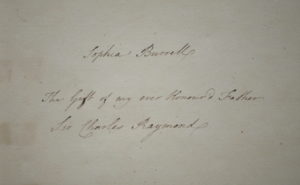 Sophia Burrell
The Gift of my ever Honour'd Father
Sir Charles Raymond